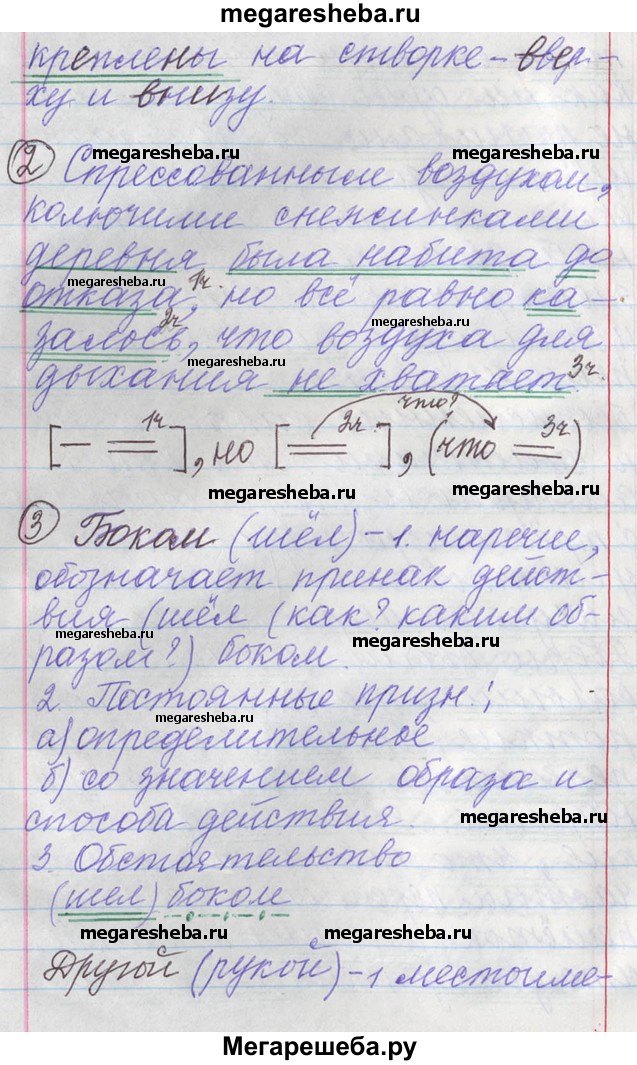 megaresheba.ru
креплены на створке – ввер-
ху и внизу.
megaresheba.ru
megaresheba.ru
2 Спрессованным воздухом,
колючими снежинками
деревня была набита до
megaresheba.ru
отказа, 1ч. но всё равно ка-
megaresheba.ru
залось, 2ч. что воздуха для
megaresheba.ru
дыхания не хватает. 3ч.
что?
[— == 1ч], но [== 2ч.], (что == 3ч)
megaresheba.ru
megaresheba.ru
3 Боком (шёл) – 1. наречие,
обозначает принак дейст-
вия (шёл (как? каким об-
megaresheba.ru
megaresheba.ru
разом?) боком.
2. Постоянные призн.:
megaresheba.ru
а) определительное
б) со значением образа и
способа действия.
megaresheba.ru
3. Обстоятельство
(шел) боком
megaresheba.ru
megaresheba.ru
Другой (рукой) – 1 местоиме-
Мегарешеба.ру